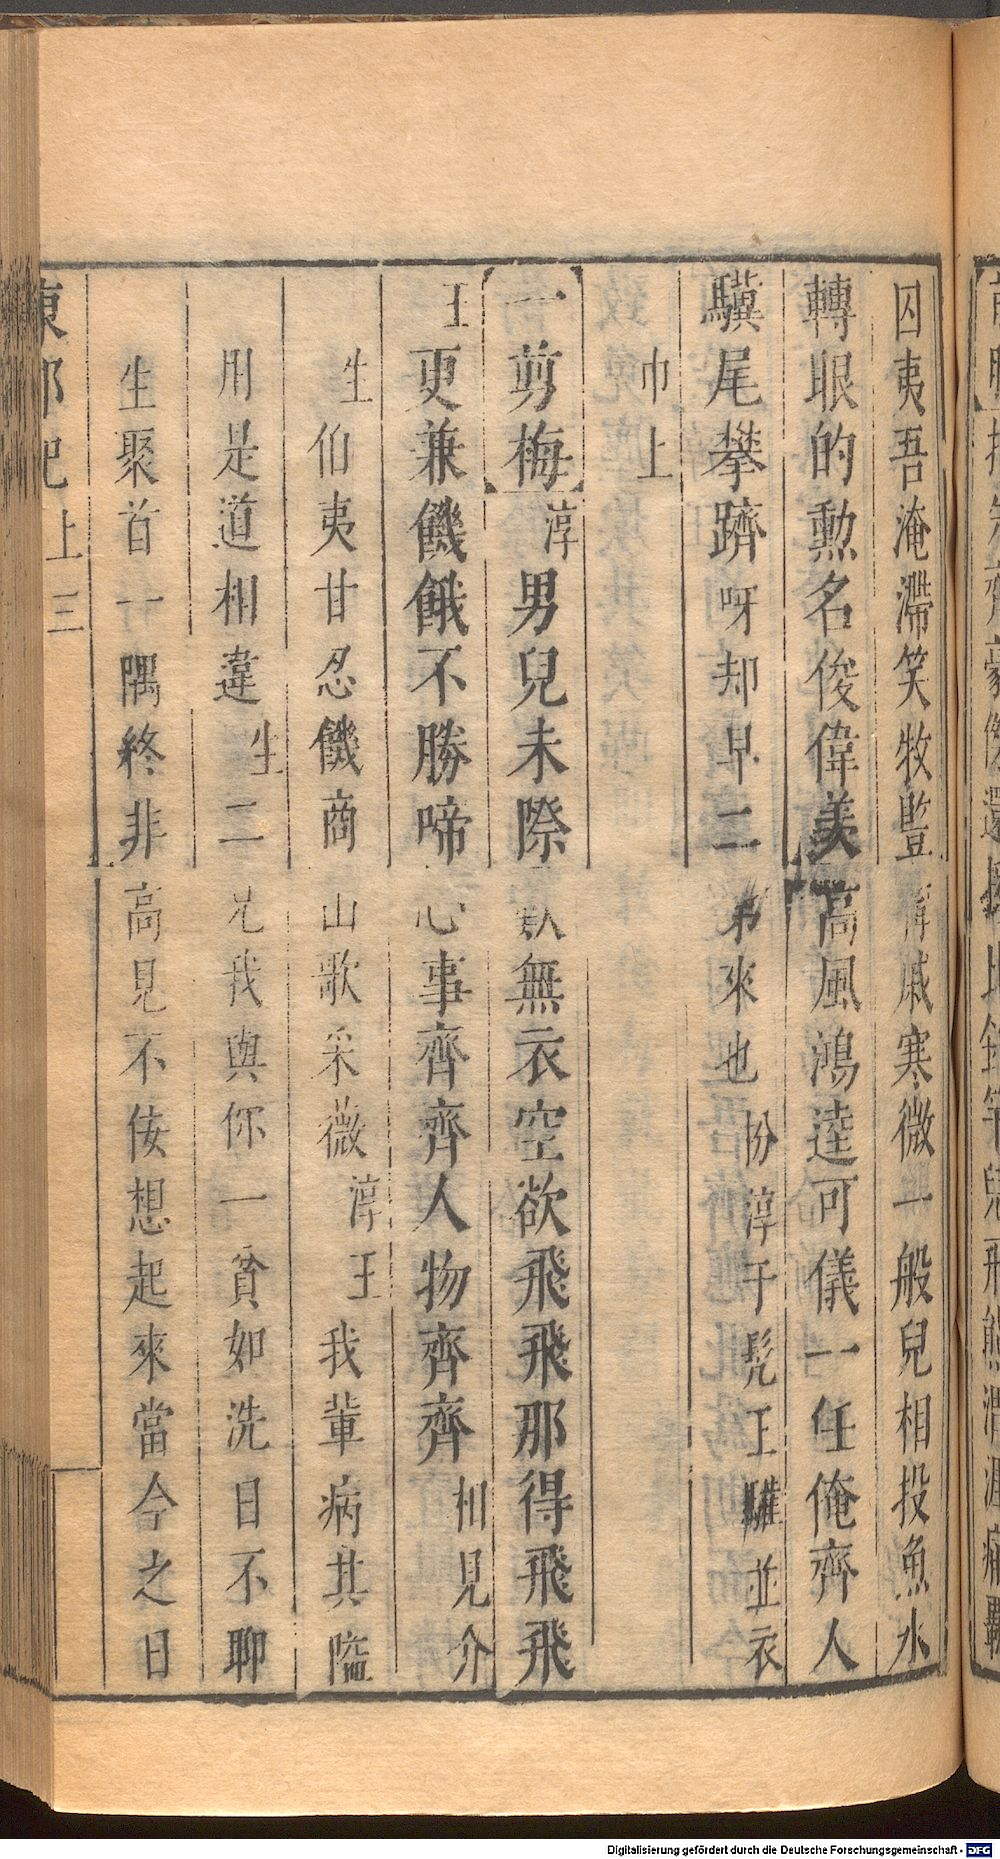 囚夷吾淹滯笑牧豎甯戚寒微一般兒相投魚水
轉眼的勳名俊偉美高風鴻逵可儀一任俺齊人
驥尾攀躋呀却早二弟來也扮淳于髡王驩並衣
巾上
一剪梅淳男兒未際臥無衣空欲飛飛那得飛飛
王更兼饑餓不勝啼心事齊齊人物齊齊相見介
生伯夷甘忍饑商山歌采薇淳王我輩病其隘
用是道相違生二兄我與你一貧如洗日不聊
生聚首一隅終非高見不佞想起來當今之日
東郭記上 三
Digitalisierung gefördert durch die Deutsche Forschungsgemeinschaft - DFG